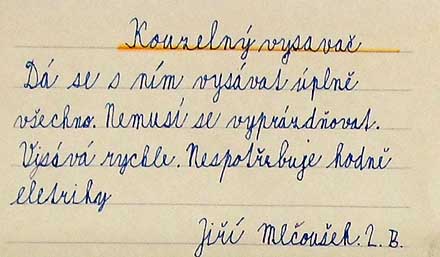 Kouzelný vysavač
Dá se s ním vysávat úplně
všechno. Nemusí se vyprázdňovat.
Vysává rychle. Nespotřebuje hodně
eletriky
Jiří Mlčoušek. 2. B.